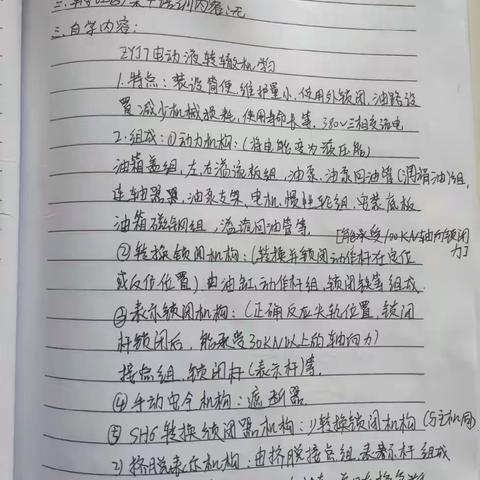 三.自学内容:
ZYJ7电动液转辙机学习
1.特点:装设简便维护量小,使用外锁闭,油路设
置减少机械损耗,使用寿命长等,380V三相交流电
2.组成:①动力机构:(将电能变为液压能)
油箱盖组,左、右溢流板组,油泵,油泵回油管(润滑油)组,
连轴器,油泵支架,电机,惯性轮组,安装底板
油箱磁钢组,溢流回油管等.
[能承受100KN轴向锁闭力]
②转换锁闭机构:(转换并锁闭动作杆在定位
或反位位置)由油缸,动作杆组,锁闭铁等组成.
③表示锁闭机构:(正确反应尖轨位置,锁闭
杆锁闭后,能承受30KN以上的轴向力)
接点组,锁闭杆(表示杆)等.
④手动安全机构:遮断器
⑤SH6转换锁闭器机构:1)转换锁闭机构(与主机同)
2)挤脱表示机构:由挤脱接点组,表示杆组成